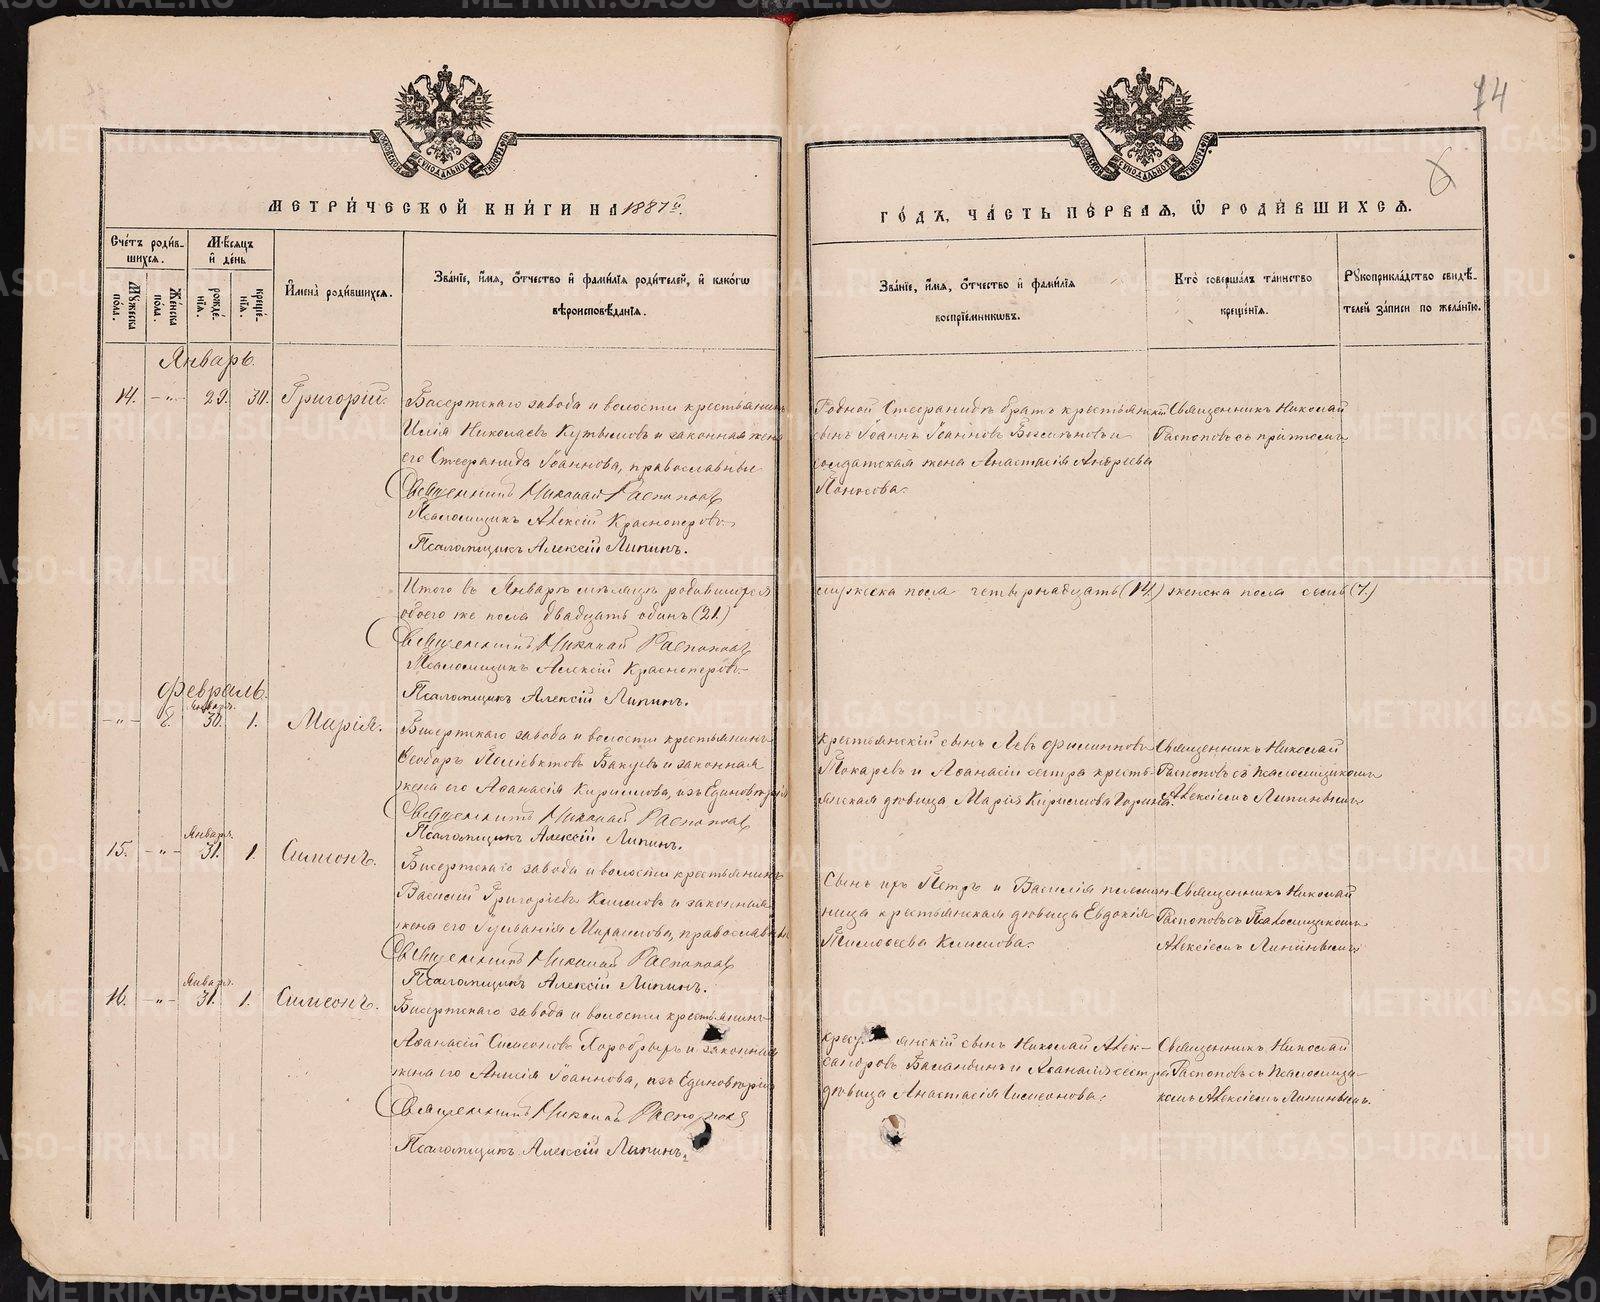 74
6
МЕТРИ́ЧЕСКОЙ КНИ́ГИ НА 1887й.
ГО́ДЪ, ЧА́СТЬ ПЕ́РВАѦ, Ѽ РОДИ́ВШИХСѦ.
Сче́тъ роди́в-
шихсѧ.
Мѣ́сѧцъ
и҆ де́нь
Му́жеска
по́ла.
Же́нска
по́ла.
рожде́-
нїѧ.
креще́-
нїѧ.
И҆мена̀ роди́вшихсѧ.
Зва́нїе, и҆́мѧ, ѻ҆́тчество и҆ фами́лїѧ роди́телей, и҆ како́гѡ
вѣроисповѣ́данїѧ.
Зва́нїе, и҆́мѧ, ѻ҆́тчество и҆ фами́лїѧ
воспрїе́мникѡвъ.
Кто̀ соверша́лъ та́инство
креще́нїѧ.
Рꙋкоприкла́дство свидѣ́-
телей за́писи по жела́нїю.
Январь.
14. -"- 29. 30. Григорій.
Бисертскаго завода и волости крестьянинъ
Илія Николаевъ Кутымовъ и законная жена
его Стефанида Іоаннова, православные
Священникъ Николай Распоповъ
Псаломщикъ Алексій Красноперовъ
Псаломщикъ Алексій Липинъ.
Родной Стефаниды братъ крестьянскій
сынъ Іоаннъ Іоанновъ и
солдатская жена Анастасія Андреева
Священникъ Николай
Распоповъ съ причтомъ
Итого въ Январѣ мѣсяцѣ родившихся
обоего же пола двадцать одинъ (21.)
мужеска пола четырнадцать (14.) женска пола семь (7.)
Священникъ Николай Распоповъ
Псаломщикъ Алексій Красноперовъ
Псаломщикъ Алексій Липинъ.
Февраль.
Января.
-"- 8. 30. 1. Марія.
Бисертскаго завода и волости крестьянинъ
Ѳеодоръ Поліевктовъ Бакуевъ и законная
жена его Аѳанасія Кирилова, изъ Единовѣрія
Священникъ Николай Распоповъ
Псаломщикъ Алексій Липинъ.
крестьянскій сынъ Левъ Филипповъ
Токаревъ и Аѳанасіи сестра кресть-
янская дѣвица Марія Кирилова Горина.
Священникъ Николай
Распоповъ съ Псаломщикомъ
Алексіемъ Липинымъ
Января.
15. -"- 31. 1. Симеонъ.
Бисертскаго завода и волости крестьянинъ
Василій Григоріевъ Климовъ и законная
жена его Іуліанія Миранова, православные
Священникъ Николай Распоповъ
Псаломщикъ Алексій Липинъ.
Сынъ ихъ Петръ и Василія племян-
ница крестьянская дѣвица Евдокія
Тимоѳеева Климова.
Священникъ Николай
Распоповъ съ Псаломщикомъ
Алексіемъ Липинымъ
Января.
16. -"- 31. 1. Симеонъ.
Бисертскаго завода и волости крестьянинъ
Аѳанасій Симеоновъ Хоробрыхъ и законная
жена его Анисія Іоаннова, изъ Единовѣрія
Священникъ Николай Распоповъ
Псаломщикъ Алексій Липинъ.
янскій сынъ Николай Алек-
сандровъ Баландинъ и Аѳанасія сестра
дѣвица Анастасія Симеонова.
Священникъ Николай
Распоповъ съ Псаломщи-
комъ Алексіемъ Липинымъ.
METRIKI.GASO-URAL.RU